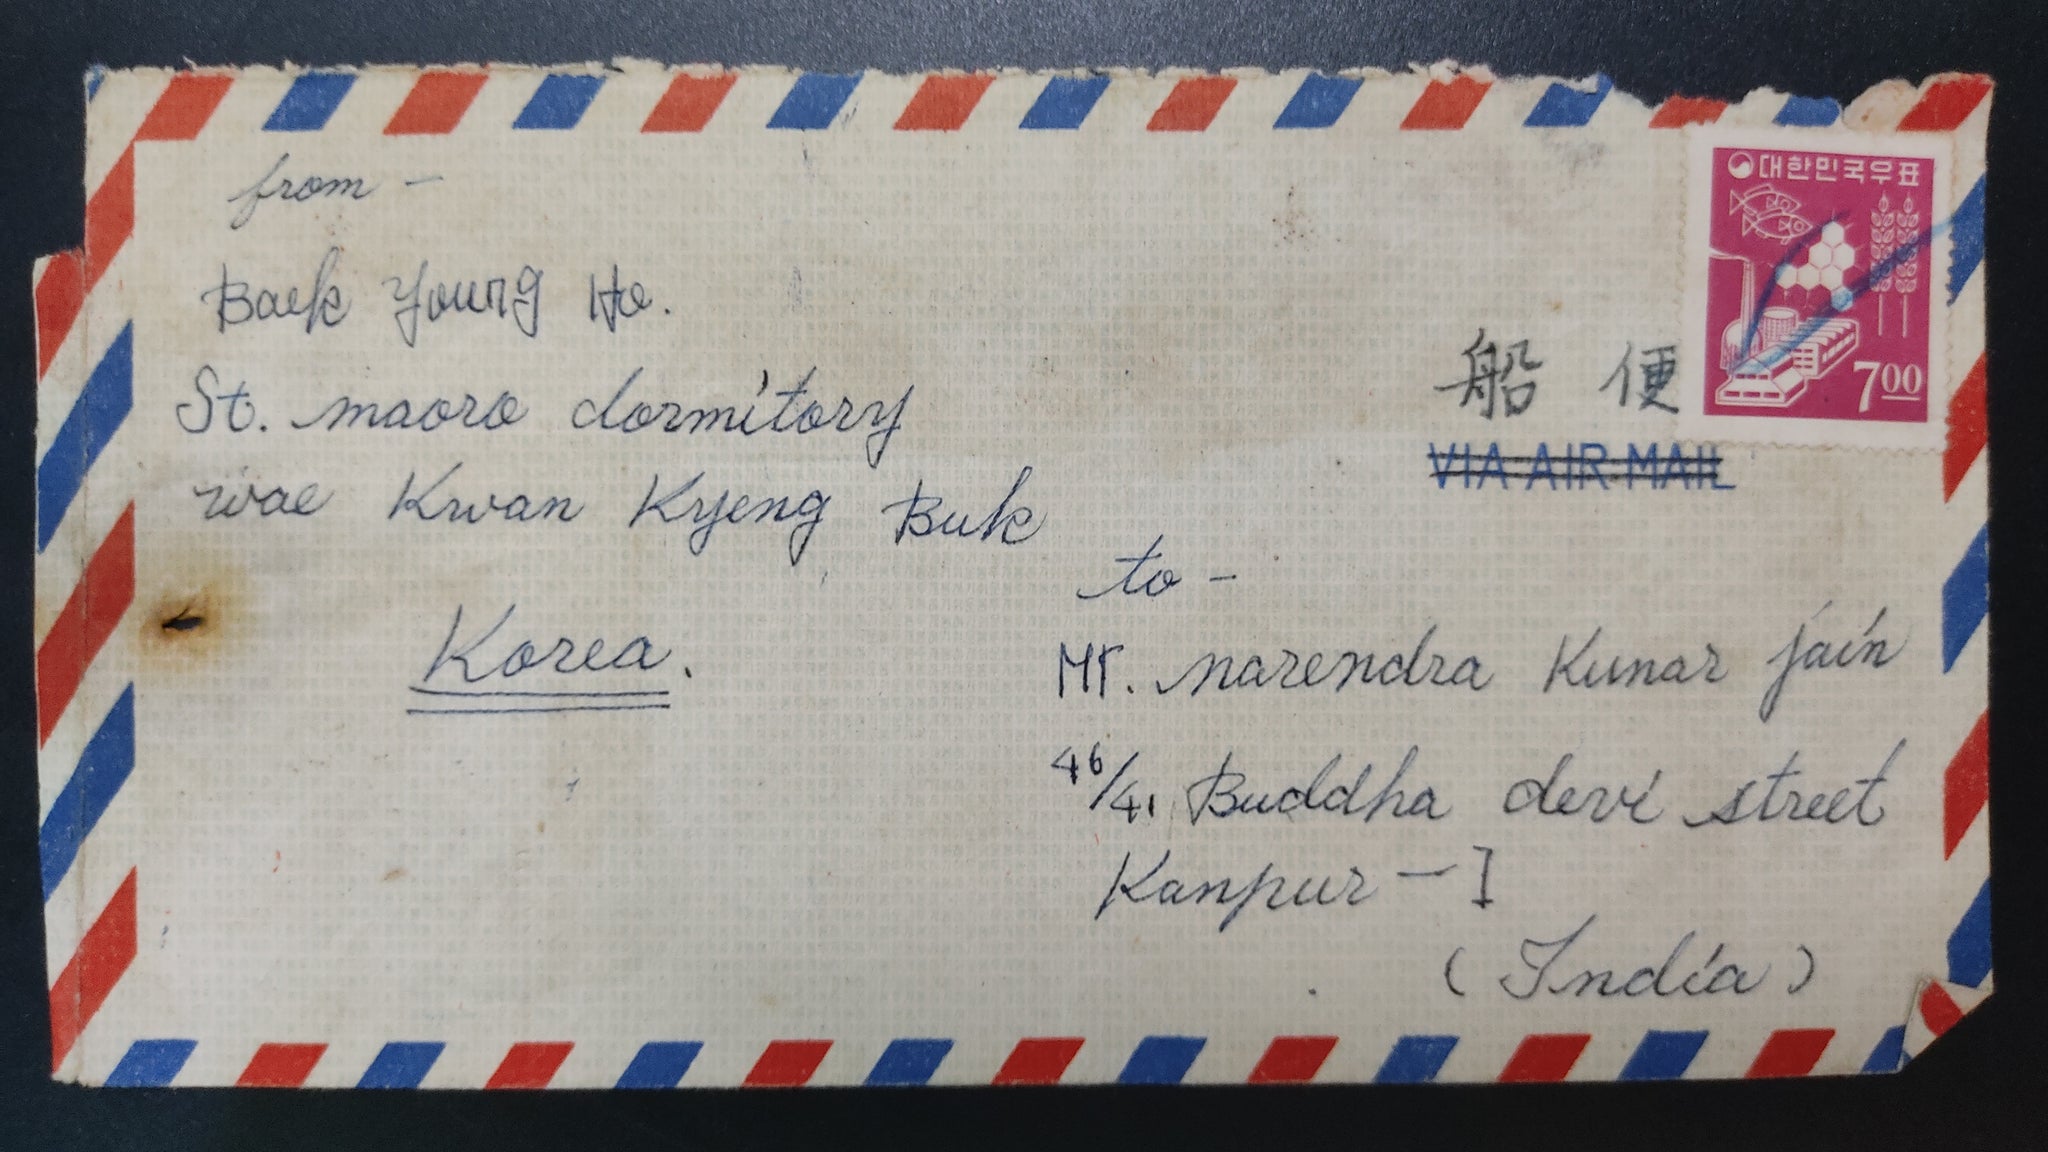 from -
Baek Young Ho.
St. maoro dormitory
wae Kwan Kyeng Buk
Korea.
대한민국우표
700
船便
VIA AIR MAIL
to -
Mr. narendra Kunar jain
46/41 Buddha devi street
Kanpur - I
(India)